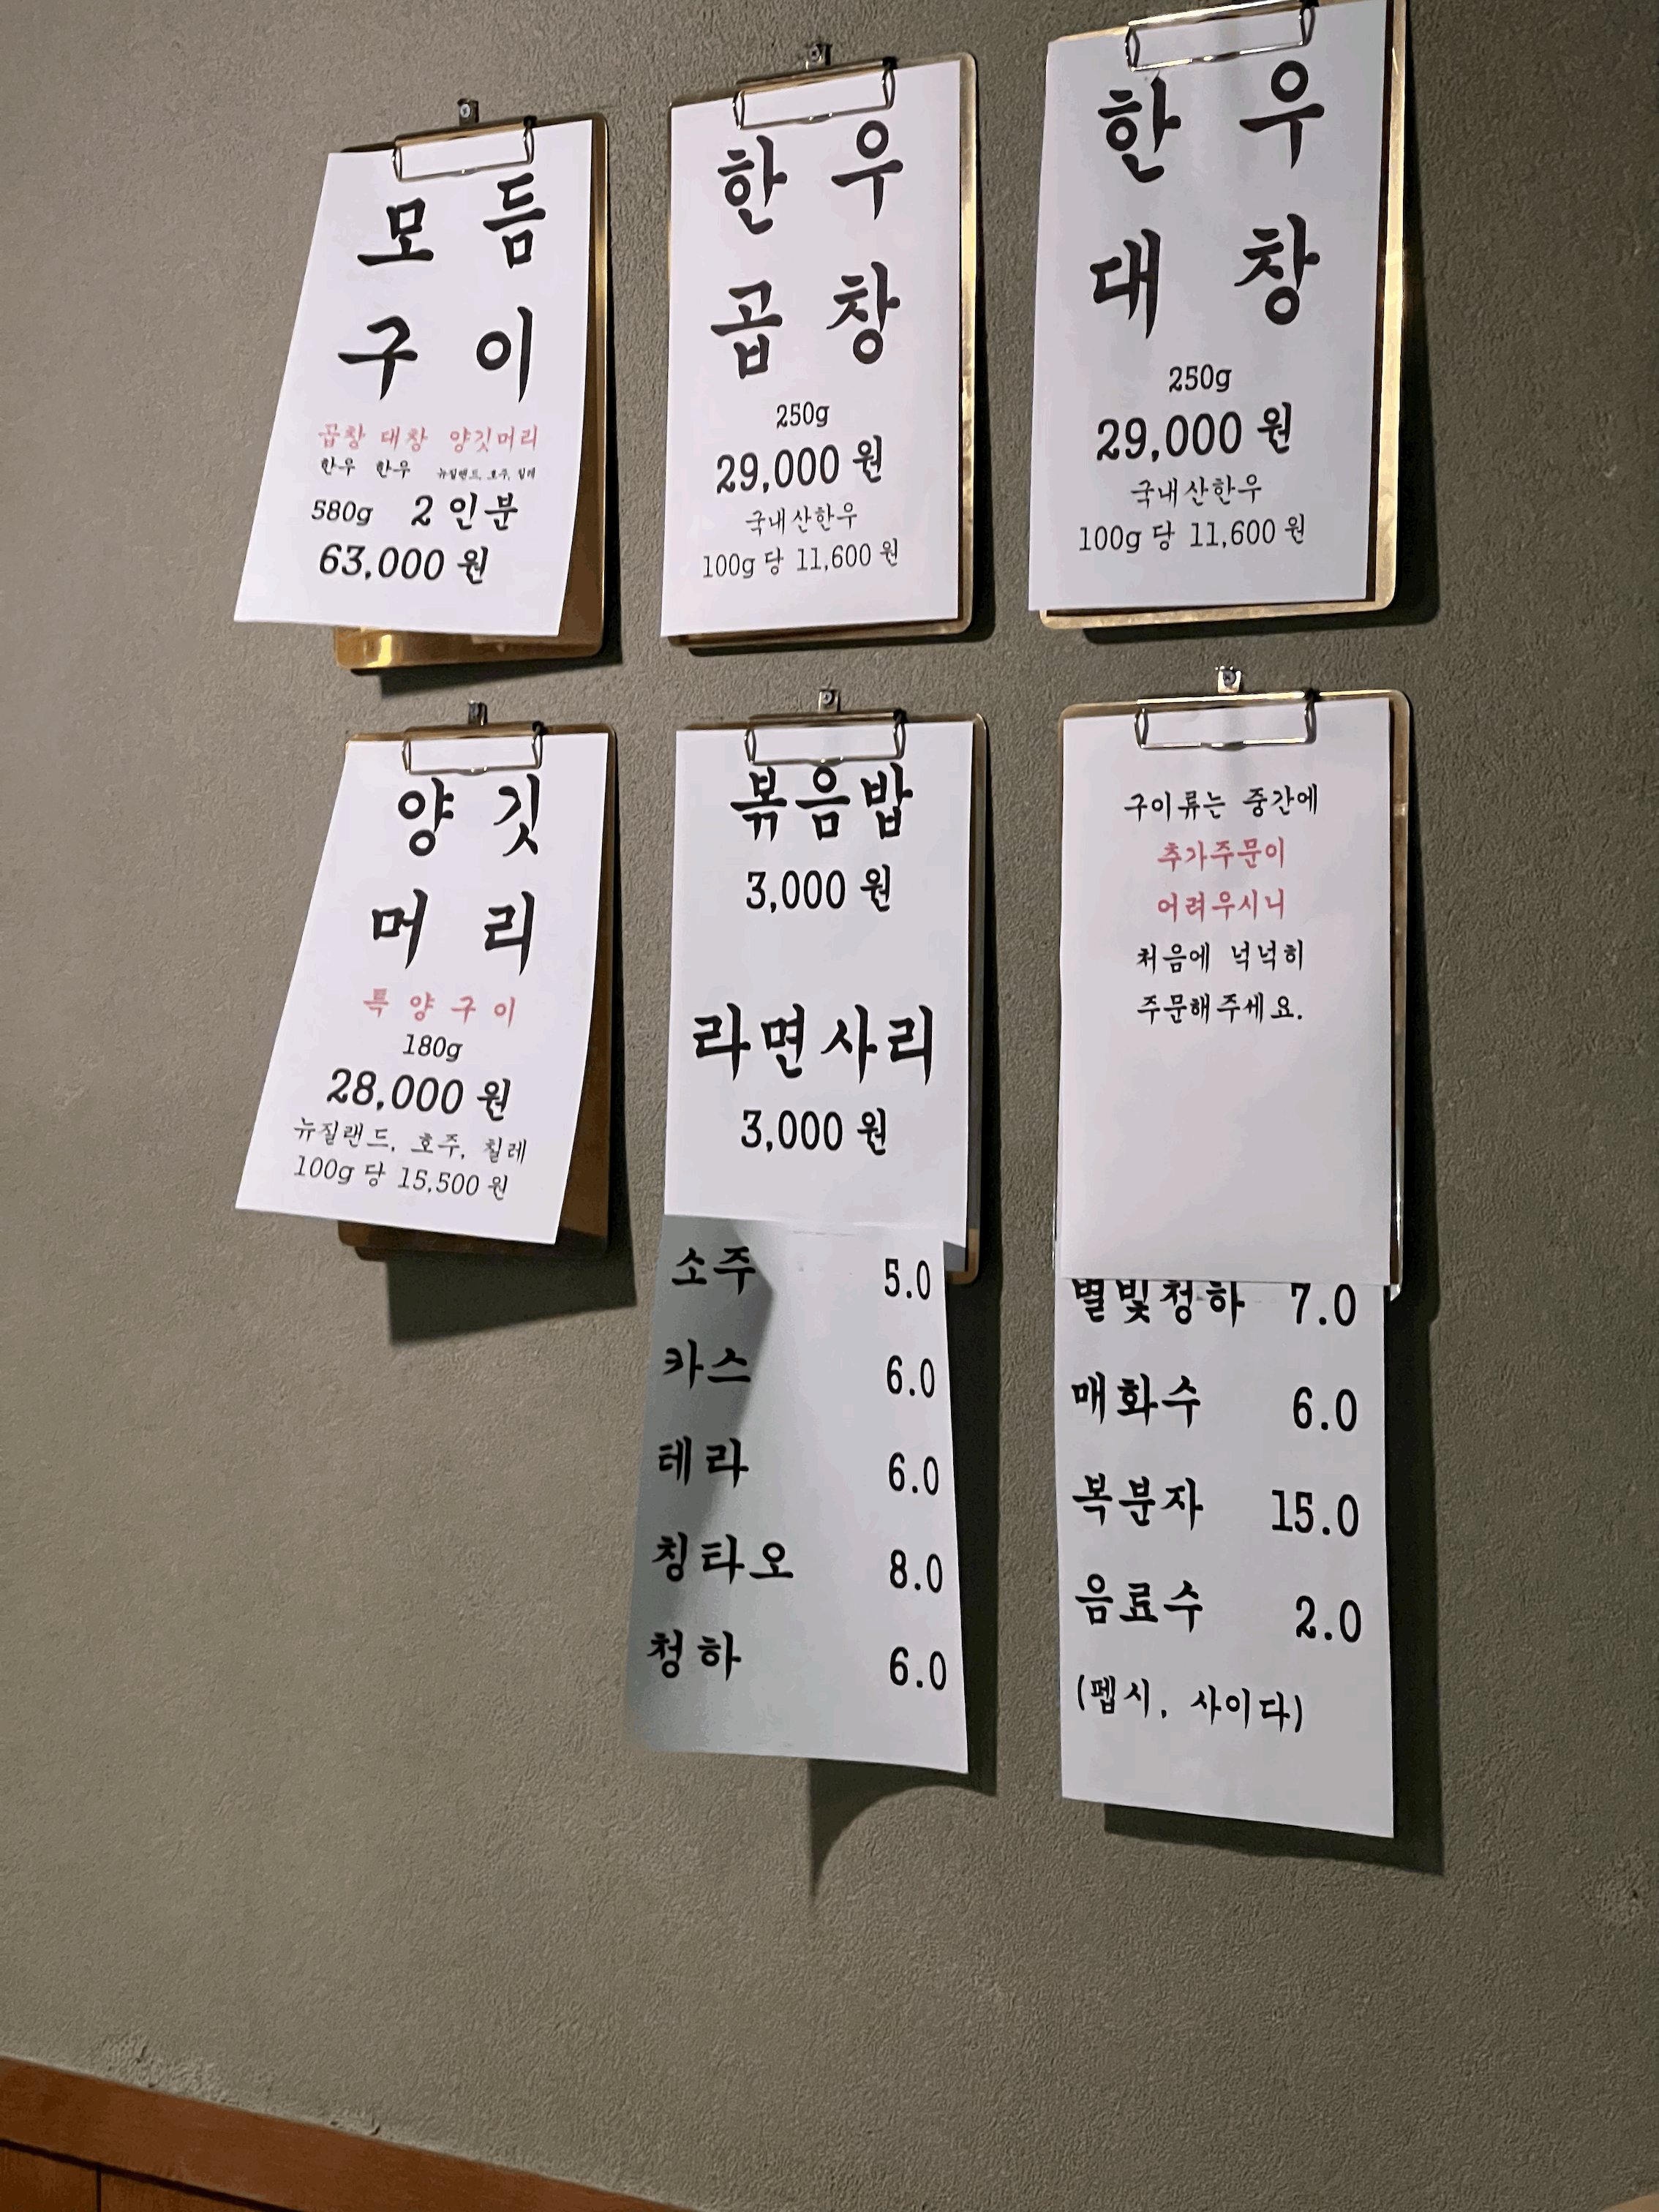 모듬
구이
곱창 대창 양깃머리
한우 한우 뉴질랜드, 호주, 칠레
580g 2인분
63,000원
한우
곱창
250g
29,000원
국내산한우
100g당 11,600원
한우
대창
250g
29,000원
국내산한우
100g당 11,600원
양깃
머리
특양구이
180g
28,000원
뉴질랜드, 호주, 칠레
100g당 15,500원
볶음밥
3,000원
라면사리
3,000원
소주 5.0
카스 6.0
테라 6.0
칭타오 8.0
청하 6.0
구이류는 중간에
추가주문이
어려우시니
처음에 넉넉히
주문해주세요.
별빛청하 7.0
매화수 6.0
복분자 15.0
음료수 2.0
(펩시, 사이다)